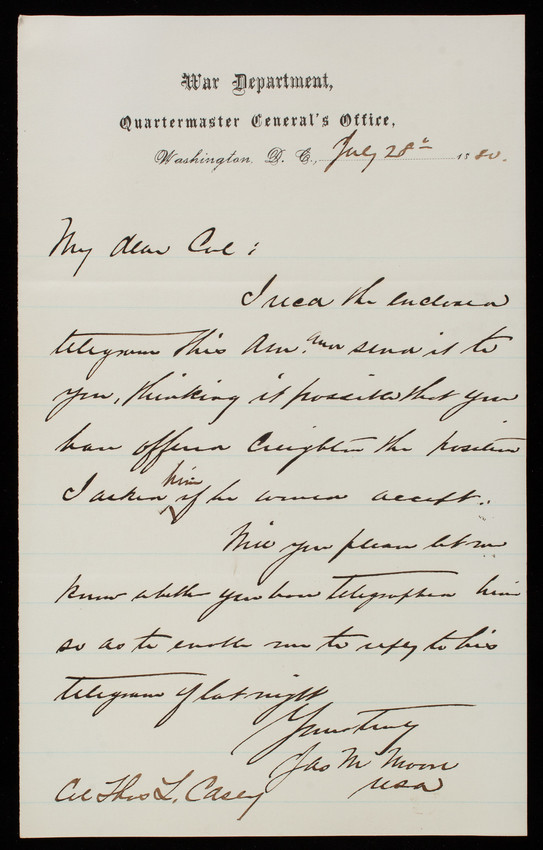 War Department,
Quartermaster General's Office,
Washington, D. C., July 28th 1880.
My dear Col:
I recd the enclosed
telegram this Am. and send it to
you, thinking it possible that you
have offered Creighton the position
I asked him if he would accept.
Will you please let me
know whether you have telegraphed him
so as to enable me to reply to his
telegram of last night
Yours truly
Jas M Moore
USA
Col Thos L. Casey